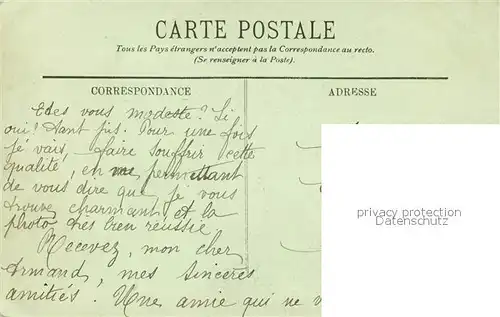 CARTE POSTALE
Tous les Pays étrangers n'acceptent pas la Correspondance au recto.
(Se renseigner à la Poste).
CORRESPONDANCE
Etes vous modeste? Si
oui! tant pis. Pour une fois
je vais, faire souffrir cette
qualité, en me permettant
de vous dire que je vous
trouve charmant et la
photo très bien réussie
Recevez, mon cher
Armand, mes sincères
amitiés. Une amie qui ne v
ADRESSE
privacy protection
Datenschutz